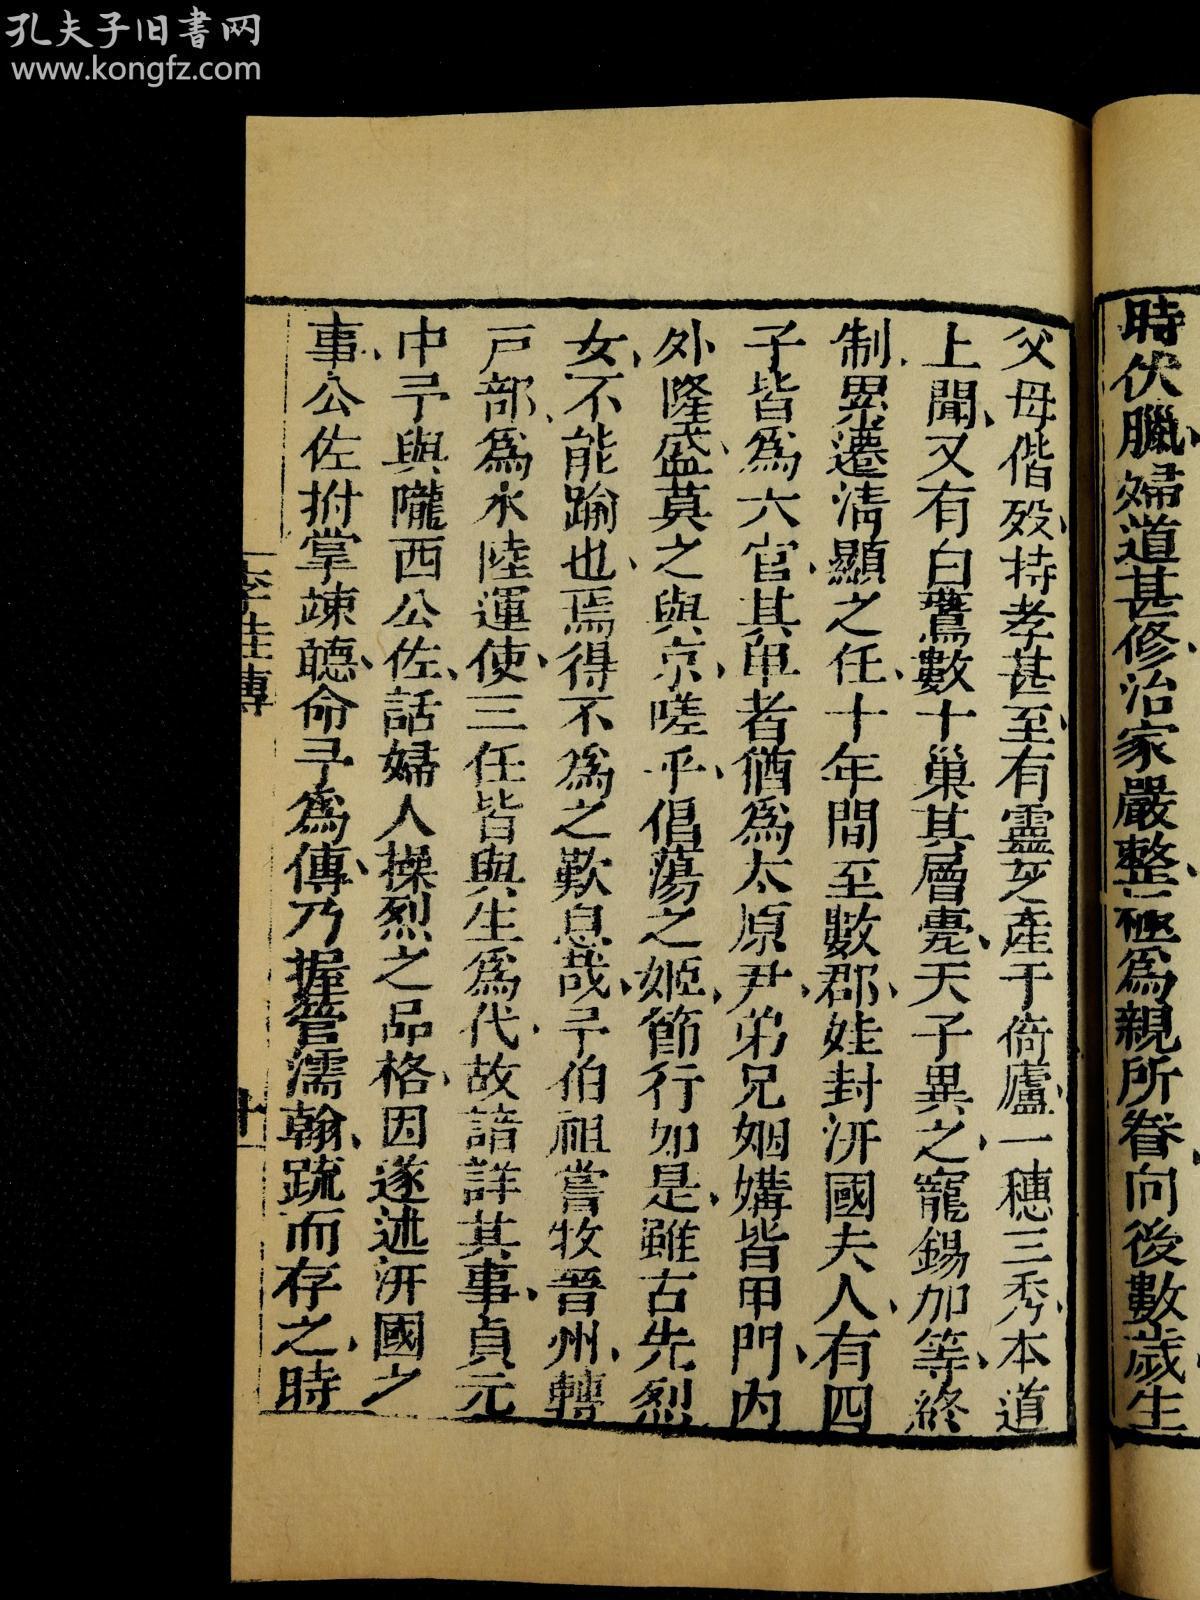 孔夫子旧書网
www.kongfz.com
時伏臘婦道甚修治家嚴整極爲親所眷向後數歲生
父母偕殁持孝甚至有靈芝產于倚廬一穗三秀本道
上聞又有白鷰數十巢其層甍天子異之寵錫加等終
制累遷清顯之任十年間至數郡娃封汧國夫人有四
子皆爲六官其卑者猶爲太原尹弟兄姻媾皆甲門內
外隆盛莫之與京嗟乎倡蕩之姬節行如是雖古先烈
女不能踰也焉得不爲之歎息哉予伯祖嘗牧晉州轉
戶部爲水陸運使三任皆與生爲代故諳詳其事貞元
中予與隴西公佐話婦人操烈之品格因遂述汧國之
事公佐拊掌竦聽命予爲傳乃握管濡翰疏而存之時
李娃傳
十一